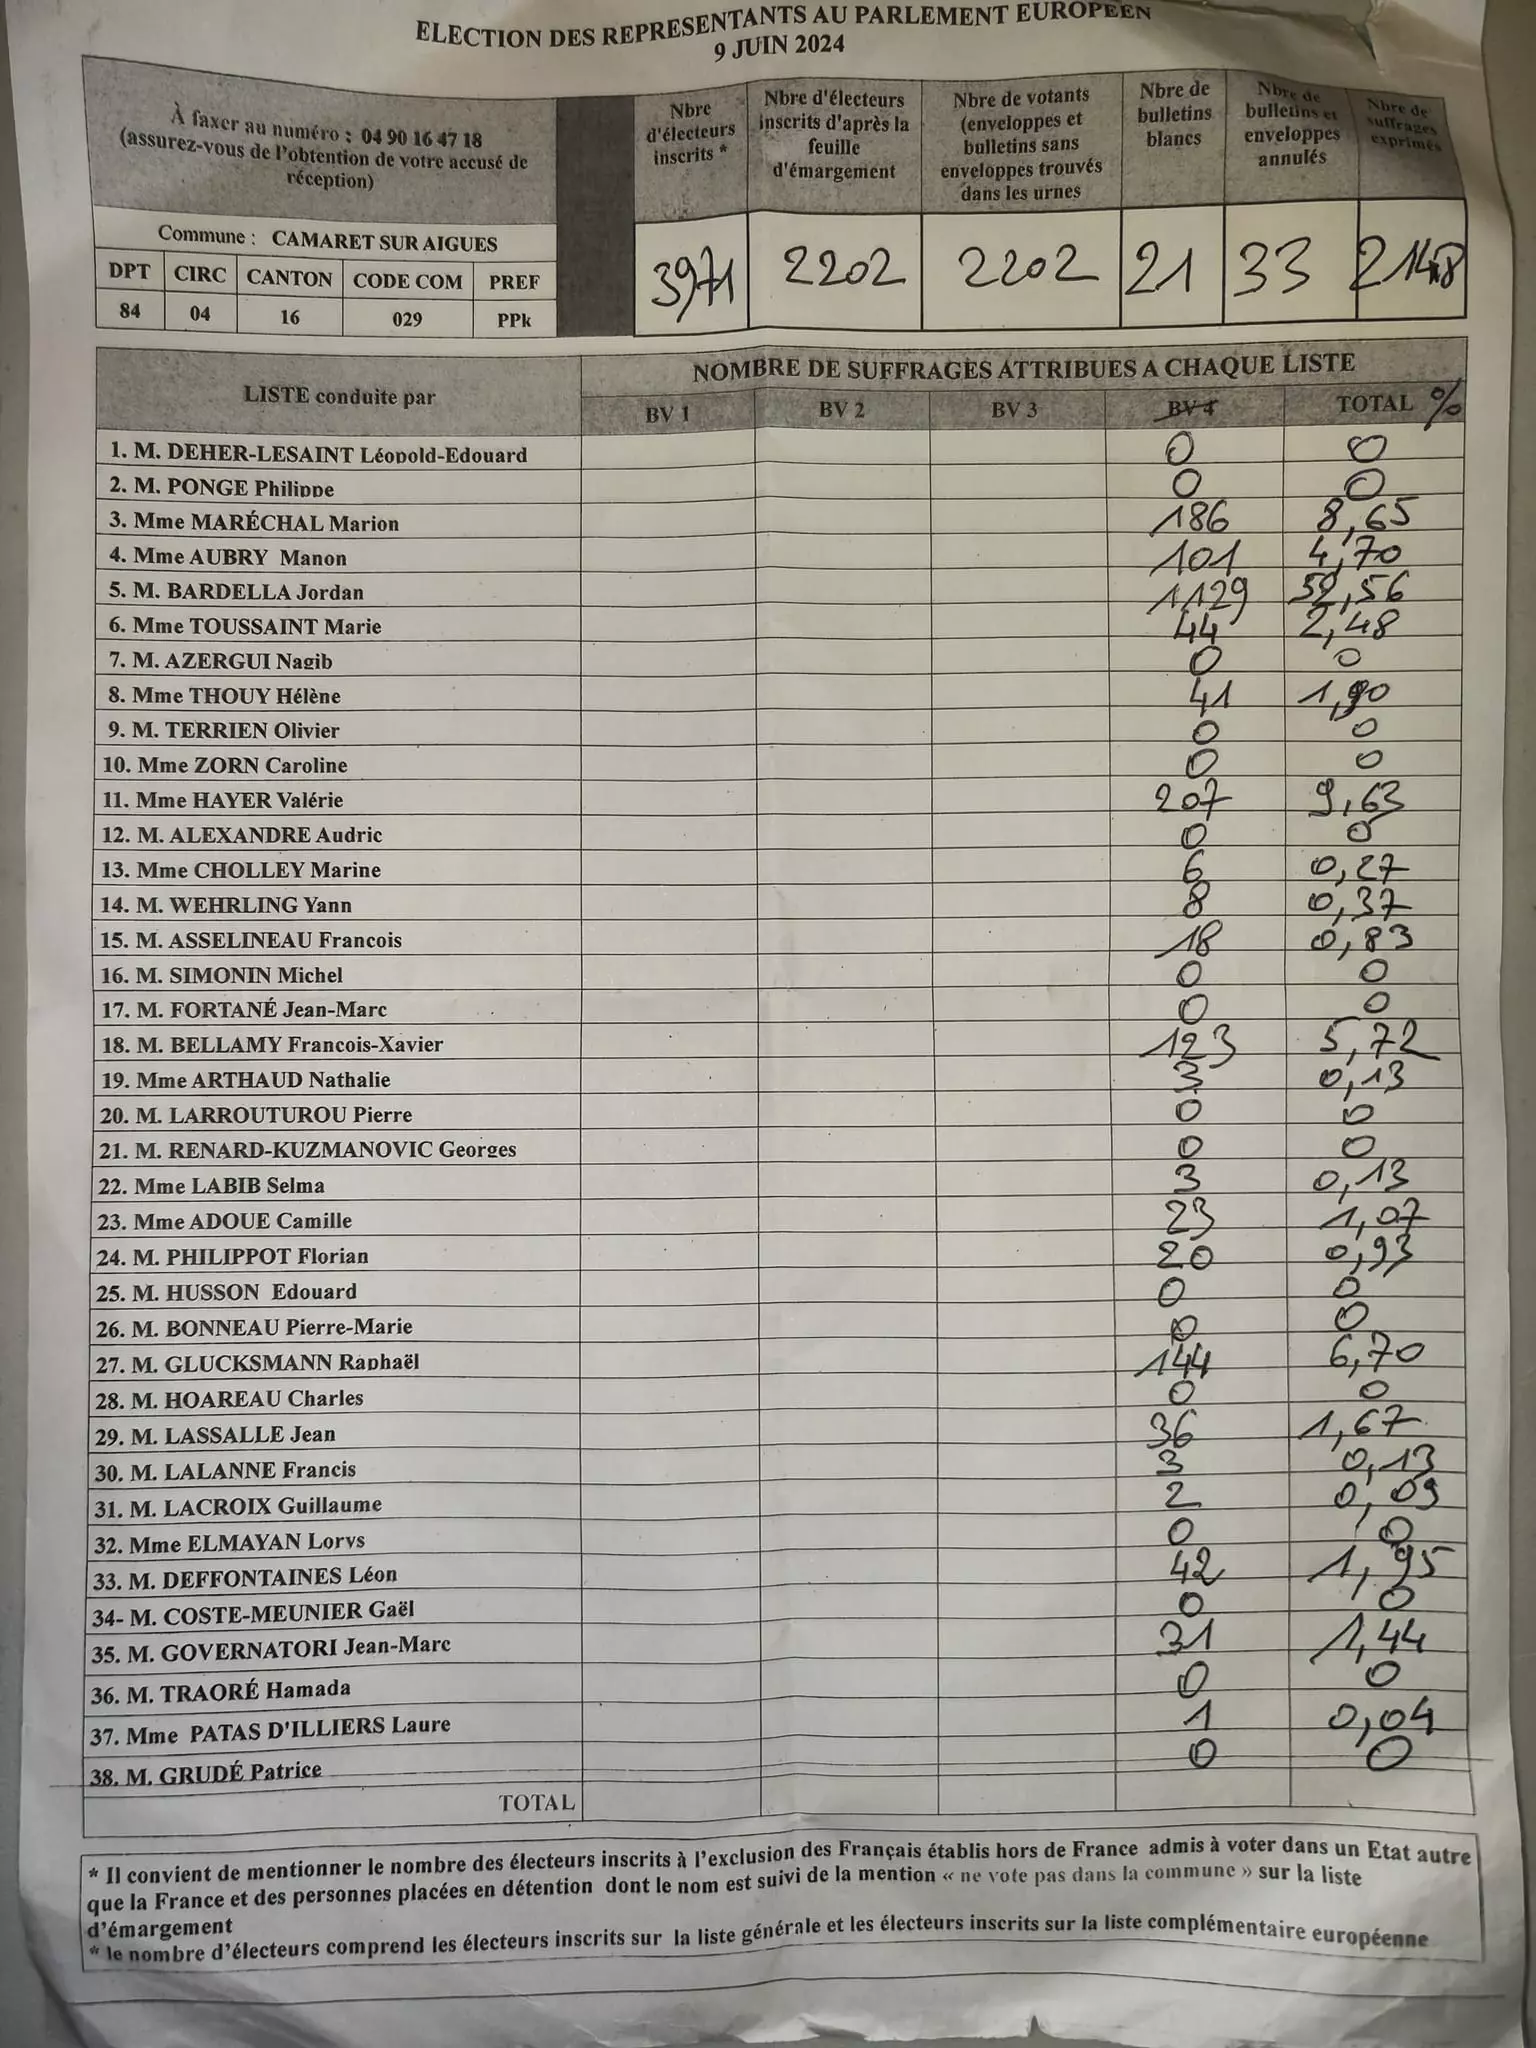 ELECTION DES REPRESENTANTS AU PARLEMENT EUROPEEN
9 JUIN 2024
À faxer au numéro : 04 90 16 47 18
(assurez-vous de l'obtention de votre accusé de
réception)
Nbre d'électeurs inscrits *
Nbre d'électeurs inscrits d'après la feuille d'émargement
Nbre de votants (enveloppes et bulletins sans enveloppes trouvés dans les urnes
Nbre de bulletins blancs
Nbre de bulletins et enveloppes annulés
Nbre de suffrages exprimés
Commune : CAMARET SUR AIGUES
DPT CIRC CANTON CODE COM PREF
84 04 16 029 PPk
3971 2202 2202 21 33 2148
LISTE conduite par
NOMBRE DE SUFFRAGES ATTRIBUES A CHAQUE LISTE
BV 1 BV 2 BV 3 BV 4 TOTAL %
1. M. DEHER-LESAINT Léopold-Edouard 0 0
2. M. PONGE Philippe 0 0
3. Mme MARÉCHAL Marion 186 8,65
4. Mme AUBRY Manon 101 4,70
5. M. BARDELLA Jordan 1129 52,56
6. Mme TOUSSAINT Marie 44 2,48
7. M. AZERGUI Nagib 0 0
8. Mme THOUY Hélène 41 1,90
9. M. TERRIEN Olivier 0 0
10. Mme ZORN Caroline 0 0
11. Mme HAYER Valérie 207 9,63
12. M. ALEXANDRE Audric 0 0
13. Mme CHOLLEY Marine 6 0,27
14. M. WEHRLING Yann 8 0,37
15. M. ASSELINEAU Francois 18 0,83
16. M. SIMONIN Michel 0 0
17. M. FORTANÉ Jean-Marc 0 0
18. M. BELLAMY Francois-Xavier 123 5,72
19. Mme ARTHAUD Nathalie 3 0,13
20. M. LARROUTUROU Pierre 0 0
21. M. RENARD-KUZMANOVIC Georges 0 0
22. Mme LABIB Selma 3 0,13
23. Mme ADOUE Camille 23 1,07
24. M. PHILIPPOT Florian 20 0,93
25. M. HUSSON Edouard 0 0
26. M. BONNEAU Pierre-Marie 0 0
27. M. GLUCKSMANN Raphaël 144 6,70
28. M. HOAREAU Charles 0 0
29. M. LASSALLE Jean 36 1,67
30. M. LALANNE Francis 3 0,13
31. M. LACROIX Guillaume 2 0,09
32. Mme ELMAYAN Lorys 0 0
33. M. DEFFONTAINES Léon 42 1,95
34- M. COSTE-MEUNIER Gaël 0 0
35. M. GOVERNATORI Jean-Marc 31 1,44
36. M. TRAORÉ Hamada 0 0
37. Mme PATAS D'ILLIERS Laure 1 0,04
38. M. GRUDÉ Patrice 0 0
TOTAL
* Il convient de mentionner le nombre des électeurs inscrits à l'exclusion des Français établis hors de France admis à voter dans un Etat autre
que la France et des personnes placées en détention dont le nom est suivi de la mention « ne vote pas dans la commune » sur la liste
d'émargement
* le nombre d'électeurs comprend les électeurs inscrits sur la liste générale et les électeurs inscrits sur la liste complémentaire européenne